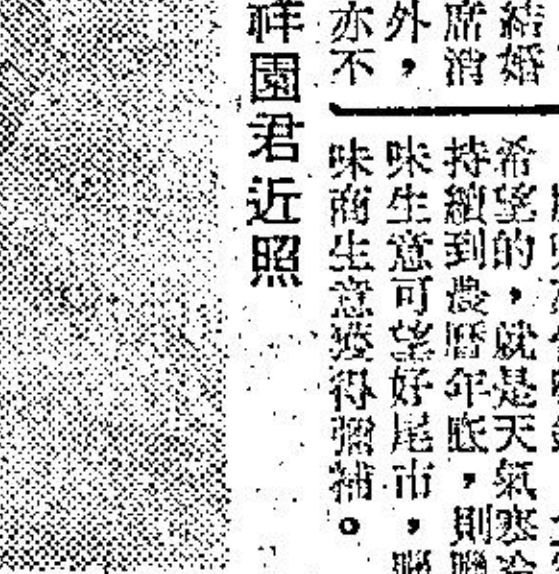 結婚
席消
外，
亦不
希望的，就是天氣寒冷
持續到農曆年底，則臘
味生意可望好尾市，臘
味商生意獲得彌補。
祥園君近照